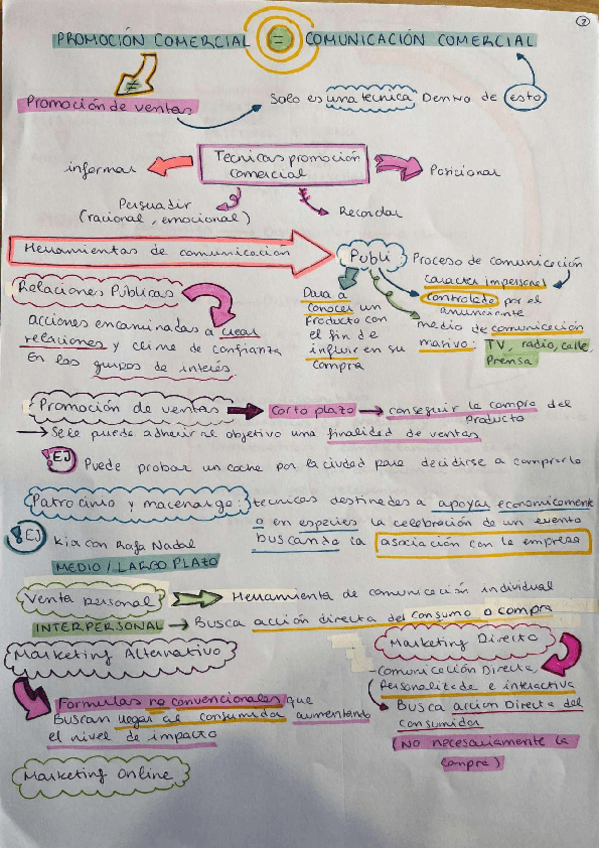 2
PROMOCIÓN COMERCIAL = COMUNICACIÓN COMERCIAL
≠
Promoción de ventas
Solo es una tecnica Dentro de esto
Tecnicas promoción
comercial
informar
Posicionar
Persuadir
(racional, emocional)
Recordar
Herramientas de comunicación
Publi
Proceso de comunicación
caracter impersonal
controlado por el
anunciante
medio de comunicación
masivo: TV, radio, calle,
Prensa
Dara a
conocer un
Producto con
el fin de
influir en su
compra
Relaciones Públicas
acciones encaminadas a crear
relaciones y clima de confianza
En los grupos de interés.
Promoción de ventas → Corto plazo → conseguir la compra del
Producto
→ Se le puede adherir al objetivo una finalidad de ventas
EJ Puede probar un coche por la ciudad para decidirse a comprarlo
Patrocinio y macenazgo: tecnicas destinadas a apoyar economicamente
o en especies la celebración de un evento
buscando la asociación con la empresa
EJ Kia con Rafa Nadal
MEDIO / LARGO PLAZO
Venta personal → Herramienta de comunicación individual
INTERPERSONAL → Busca acción directa del consumo o compra
Marketing Alternativo
Formulas no convencionales que
Buscan llegar al consumidor aumentando
el nivel de impacto
Marketing Directo
Comunicación Directa
Personalizada e interactiva
Busca acción Directa del
consumidor
(No necesariamente la
compra)
Marketing Online